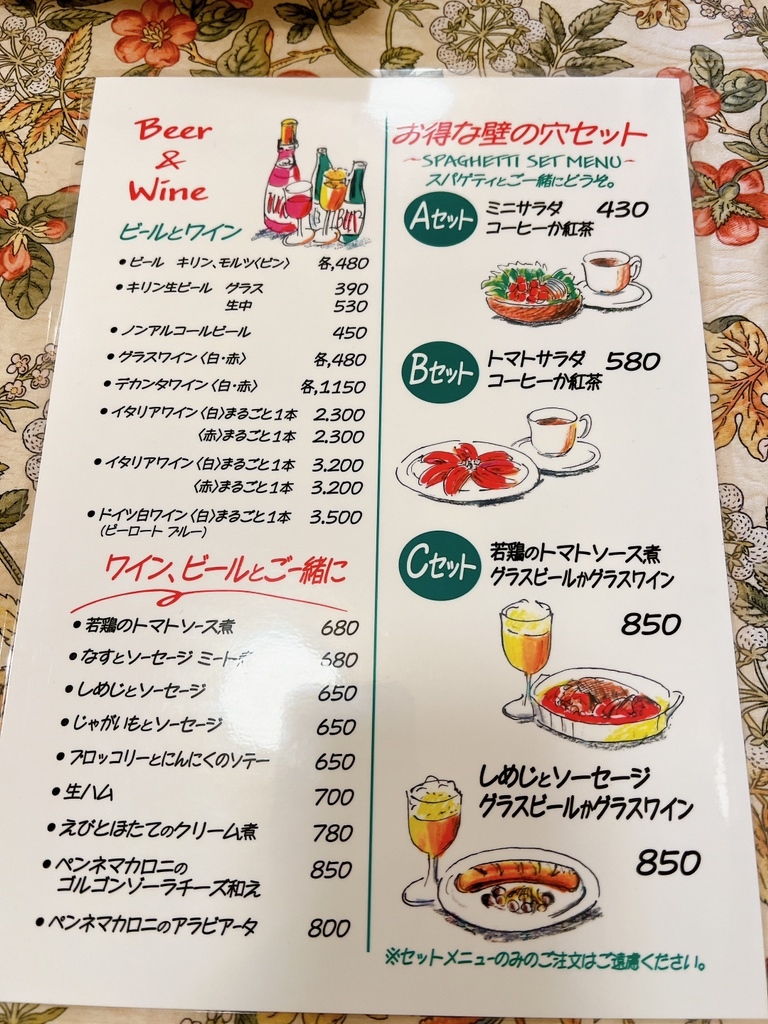 Beer
&
Wine
ビールとワイン
•ビール キリン、モルツ〈ビン〉 各,480
•キリン生ビール グラス 390
生中 530
•ノンアルコールビール 450
•グラスワイン〈白・赤〉 各,480
•デカンタワイン〈白・赤〉 各,1150
•イタリアワイン〈白〉まるごと1本 2.300
〈赤〉まるごと1本 2.300
•イタリアワイン〈白〉まるごと1本 3.200
〈赤〉まるごと1本 3.200
•ドイツ白ワイン〈白〉まるごと1本 3.500
(ピーロート ブルー)
ワイン、ビールとご一緒に
•若鶏のトマトソース煮 680
•なすとソーセージ ミート 680
•しめじとソーセージ 650
•じゃがいもとソーセージ 650
•ブロッコリーとにんにくのソテー 650
•生ハム 700
•えびとほたてのクリーム煮 780
•ペンネマカロニの 850
ゴルゴンゾーラチーズ和え
•ペンネマカロニのアラビアータ 800
お得な壁の穴セット
~SPAGHETTI SET MENU~
スパゲティとご一緒にどうぞ。
Aセット ミニサラダ 430
コーヒーか紅茶
Bセット トマトサラダ 580
コーヒーか紅茶
Cセット 若鶏のトマトソース煮
グラスビールかグラスワイン
850
しめじとソーセージ
グラスビールかグラスワイン
850
※セットメニューのみのご注文はご遠慮ください。